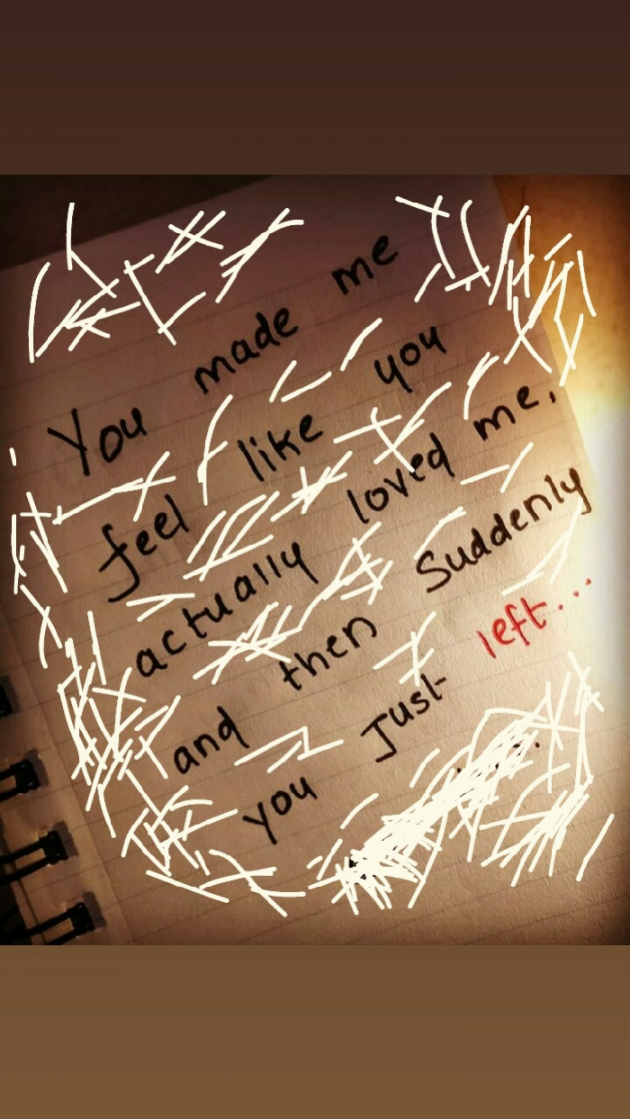 You made me
feel like you
actually loved me,
and then Suddenly
you Just left...